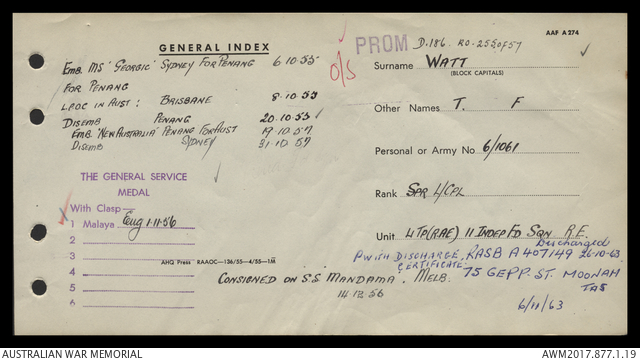 AAF A274
GENERAL INDEX
PROM D.186. RO-2550f57
EMB. MS 'GEORGIC' SYDNEY FOR PENANG 6.10.55
O/S
Surname WATT
(BLOCK CAPITALS)
FOR PENANG
L.POC IN AUST: BRISBANE 8.10.55
Other Names T. F
DISEMB PENANG 20.10.55
EMB. 'NEW AUSTRALIA' PENANG FOR AUST 19.10.57
DISEMB SYDNEY 31.10.57
Personal or Army No. 6/1061
THE GENERAL SERVICE
MEDAL
Rank SPR L/CPL
With Clasp—
1 Malaya Eng 1.11.56
Unit 4 TP (RAE) 11 INDEP FD SQN R.E.
2
Discharged
3
P WITH DISCHARGE CERTIFICATE. RASB A 407149 26-10-63
AHQ Press RAAOC—136/55—4/55—1M
4
CONSIGNED ON S.S. MANDAMA. MELB. 75 GEPP. ST. MOONAH
TAS
5
14.12.56
6
6/11/63
AUSTRALIAN WAR MEMORIAL
AWM2017.877.1.19